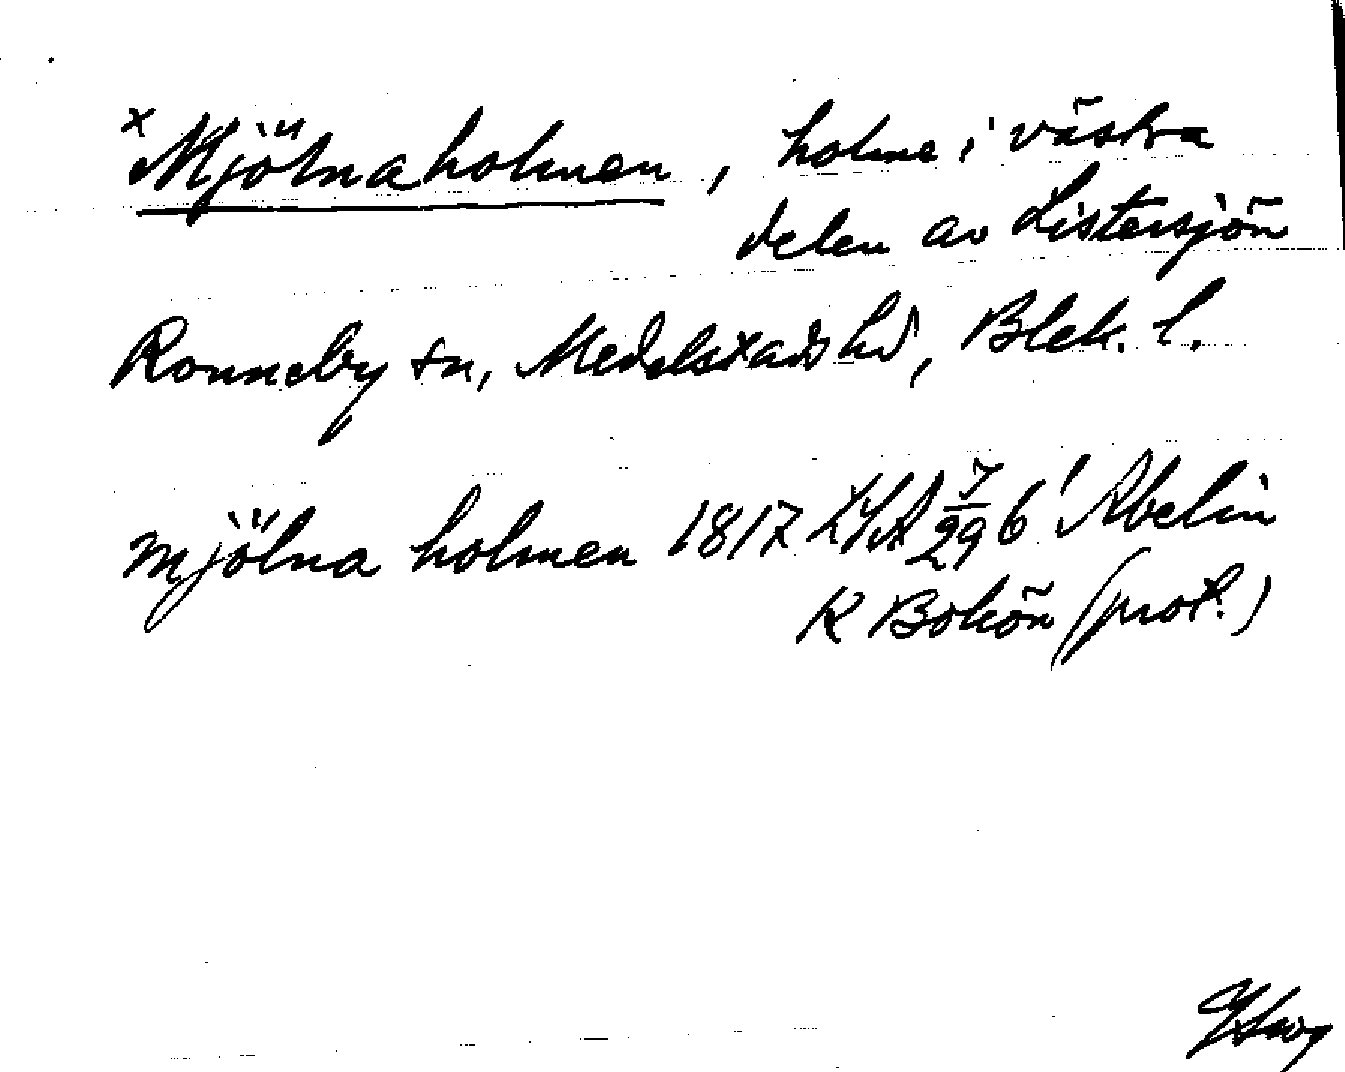 x Mjölnaholmen, holme i västra
delen av Listersjön
Ronneby sn, Medelstads hd, Blek. l.
mjölna holmen 1817 LSA 7/29 6! Abelin
K Bokön (prot.)